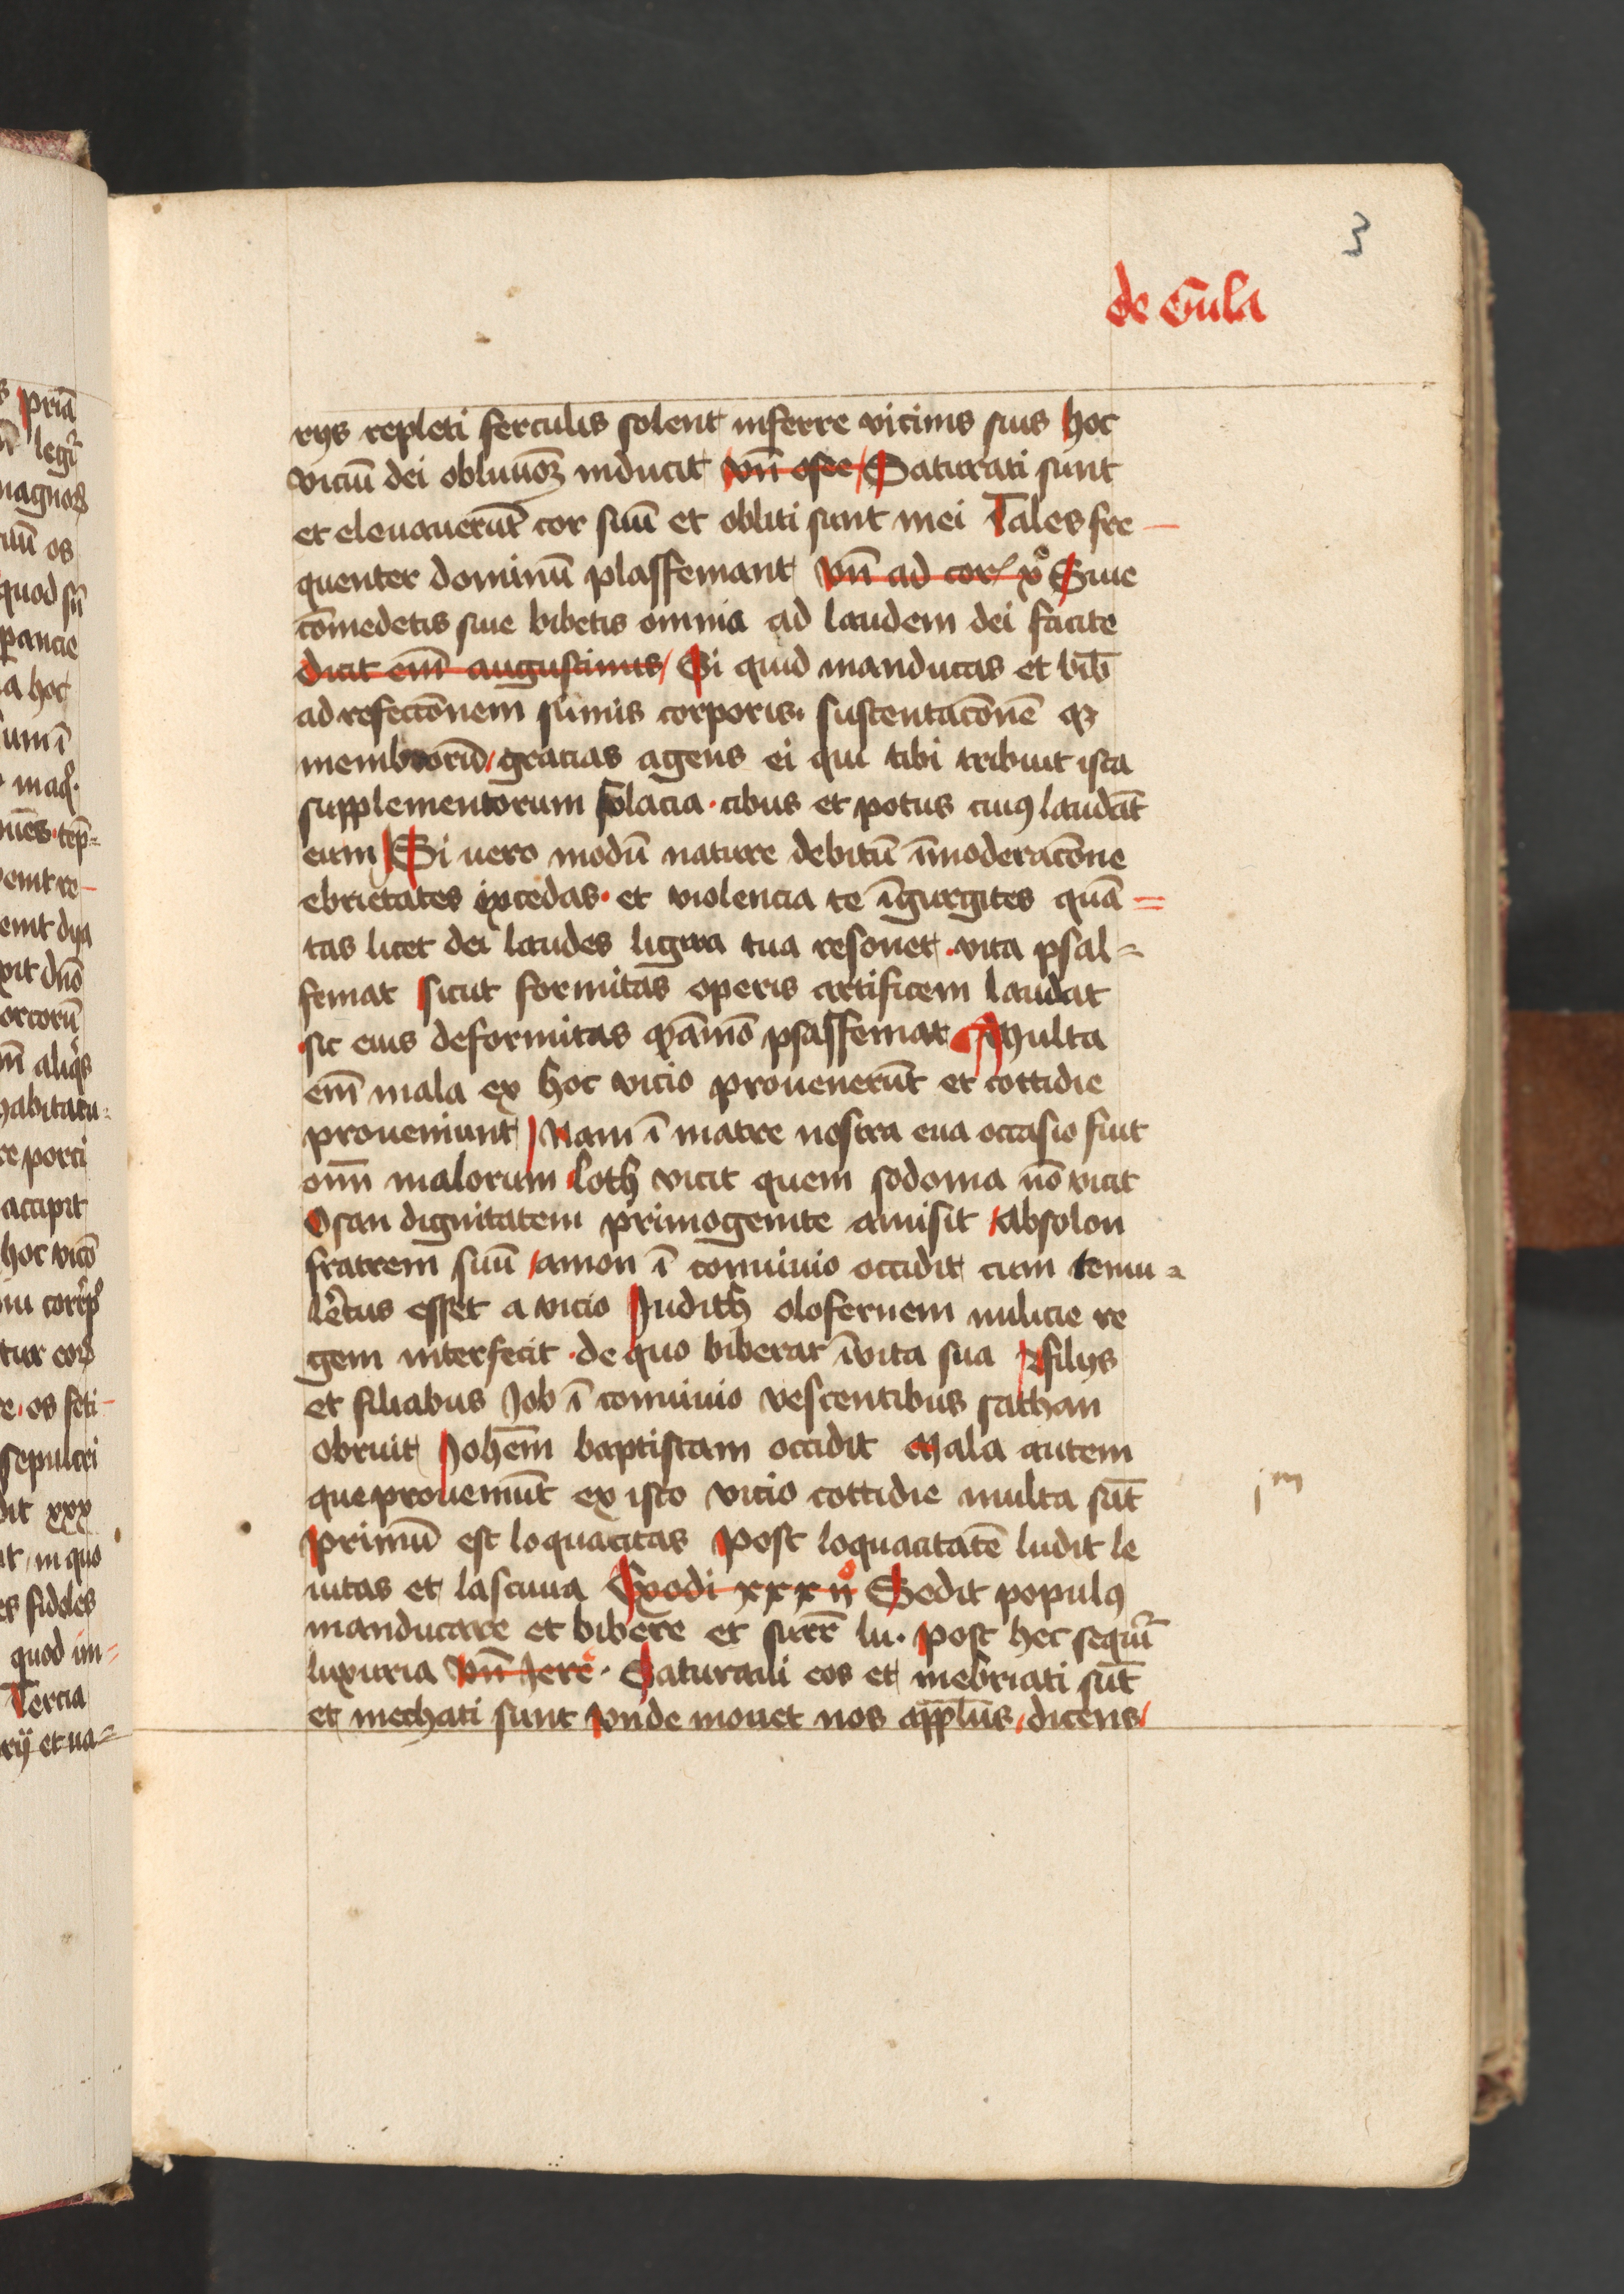 3
de Gula
rijs repleti ferculis solent inferre vicinis suis hoc
viciū dei obliuiōꝫ inducit vn̄ osee Saturati sunt
et eleuauerūt cor suū et obliti sunt mei Tales fre-
quenter dominū plasfemant vn̄ ad cor xº Siue
cōmedetis siue bibetis omnia ad laudem dei facite
dicit em̄ augustinus Si quid manducas et bib̄
ad refectōnem sumis corporis· sustentacōnē qꝫ
membrorū gracias agens ei qui tibi tribuit ista
supplementorum solacia · cibus et potus tuus laudāt
eum Si uero modū nature debitū īmoderacōne
ebrietates excedas· et violencia te īgurgites quā=
tas licet dei laudes ligwa tua resonet · vita psal=
femat sicut formitas operis artificem laudat
sic eius deformitas psasfemat Multa
em̄ mala ex hoc vicio prouenerūt et cottidie
proueniunt Nam ī matre nostra eua occasio fuit
om̄ malorum loth vicit quem sodoma nō vicit
dignitatem primogenite amisit absolon
fratrem suū amon ī conuiuio occidit cum temu=
lētus esset a vicio Judith olofernem milicie re
gem interfecit · de quo biberat ī vita sua filijs
et filiabus Job ī conuiuio vescentibus sathan
obruit Johēm baptistam occidit Mala autem
que proueniūt ex isto vicio cottidie multa sūt
primū est loquacitas Post loquacitatē ludit le
uitas et lasciuia Exodi xxxijº Sedit populus
manducare et bibere et surr̄ lu· post hec sequit᷑
luxuria vn̄ Jere · Saturaui eos et inebriati sūt
et mechati sunt vnde monet nos app̄lus dicens
jm